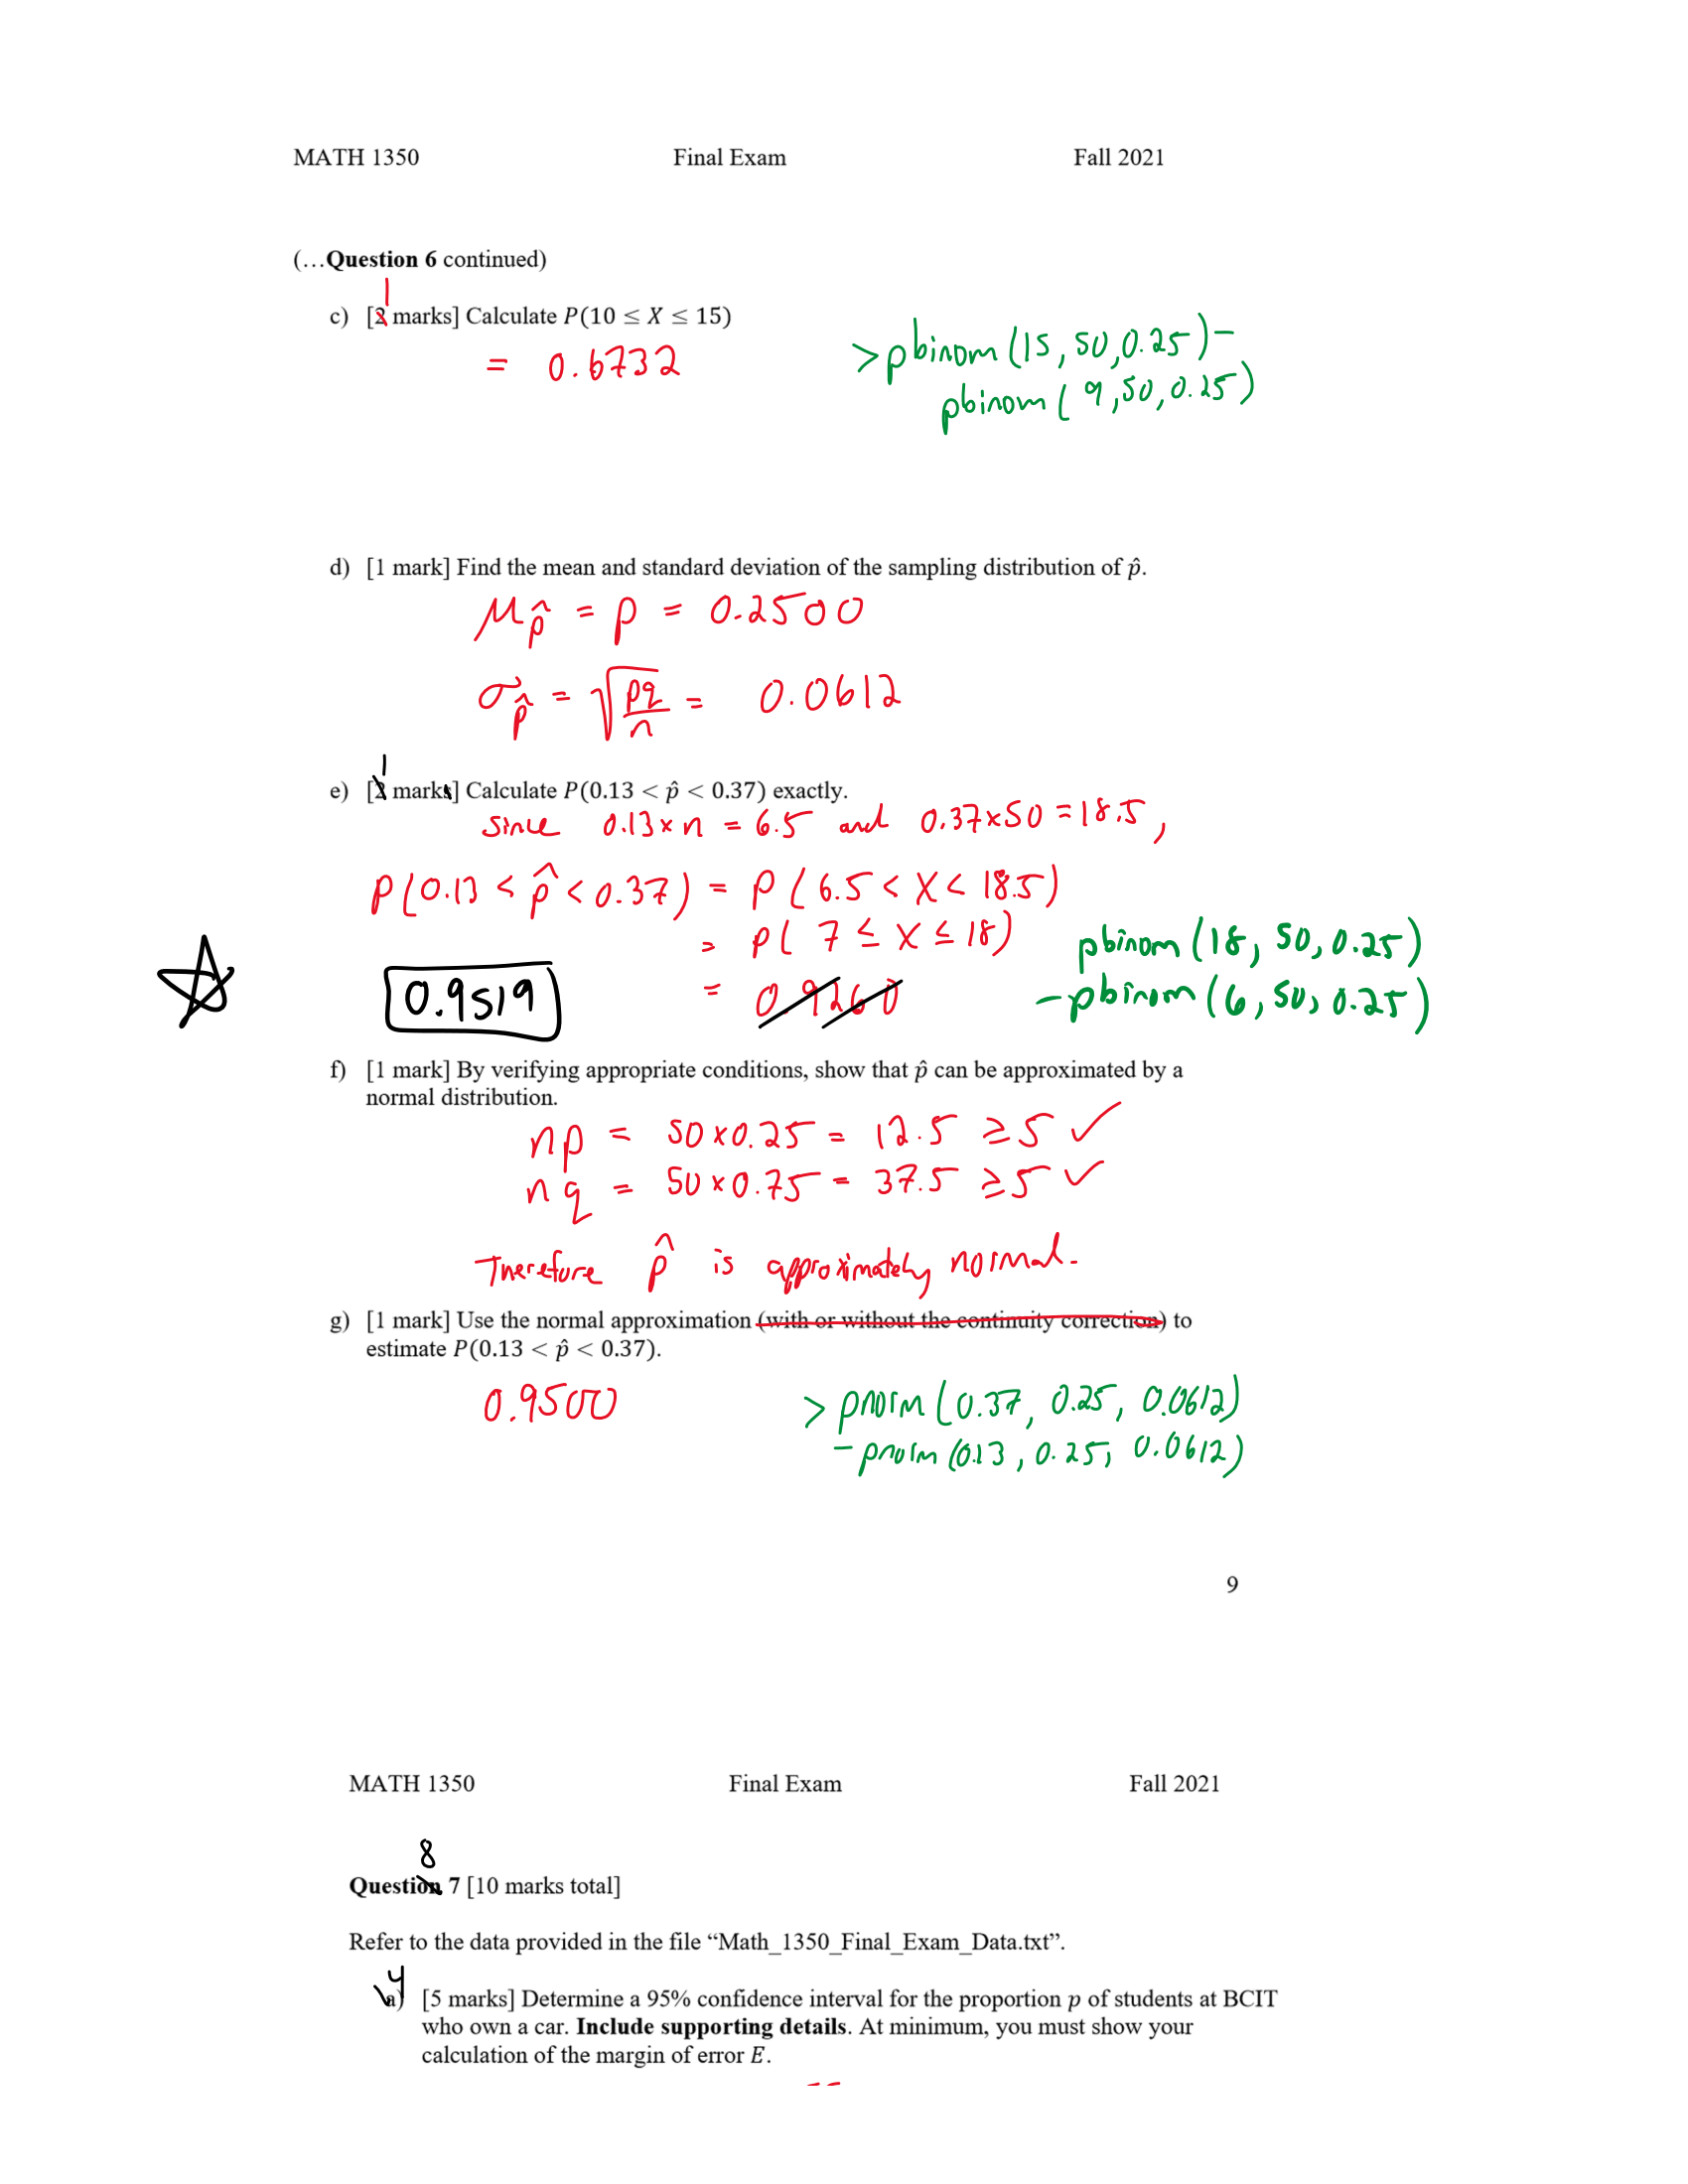 MATH 1350 Final Exam Fall 2021
(…Question 6 continued)
1
c) [2 marks] Calculate P(10 ≤ X ≤ 15)
= 0.6732
>pbinom(15,50,0.25)-
pbinom(9,50,0.25)
d) [1 mark] Find the mean and standard deviation of the sampling distribution of p̂.
μp̂ = p = 0.2500
σp̂ = √(pq/n) = 0.0612
1
e) [2 marks] Calculate P(0.13 < p̂ < 0.37) exactly.
since 0.13×n = 6.5 and 0.37×50 = 18.5,
P(0.13 < p̂ < 0.37) = P(6.5 < X < 18.5)
= P( 7 ≤ X ≤ 18)
pbinom(18, 50, 0.25)
0.9519
= 0.9260
-pbinom(6, 50, 0.25)
f) [1 mark] By verifying appropriate conditions, show that p̂ can be approximated by a
normal distribution.
np = 50×0.25 = 12.5 ≥5 ✓
nq = 50×0.75 = 37.5 ≥5 ✓
Therefore p̂ is approximately normal.
g) [1 mark] Use the normal approximation (with or without the continuity correction) to
estimate P(0.13 < p̂ < 0.37).
0.9500
> pnorm(0.37, 0.25, 0.0612)
-pnorm(0.13, 0.25, 0.0612)
9
MATH 1350 Final Exam Fall 2021
8
Question 7 [10 marks total]
Refer to the data provided in the file “Math_1350_Final_Exam_Data.txt”.
4
a) [5 marks] Determine a 95% confidence interval for the proportion p of students at BCIT
who own a car. Include supporting details. At minimum, you must show your
calculation of the margin of error E.